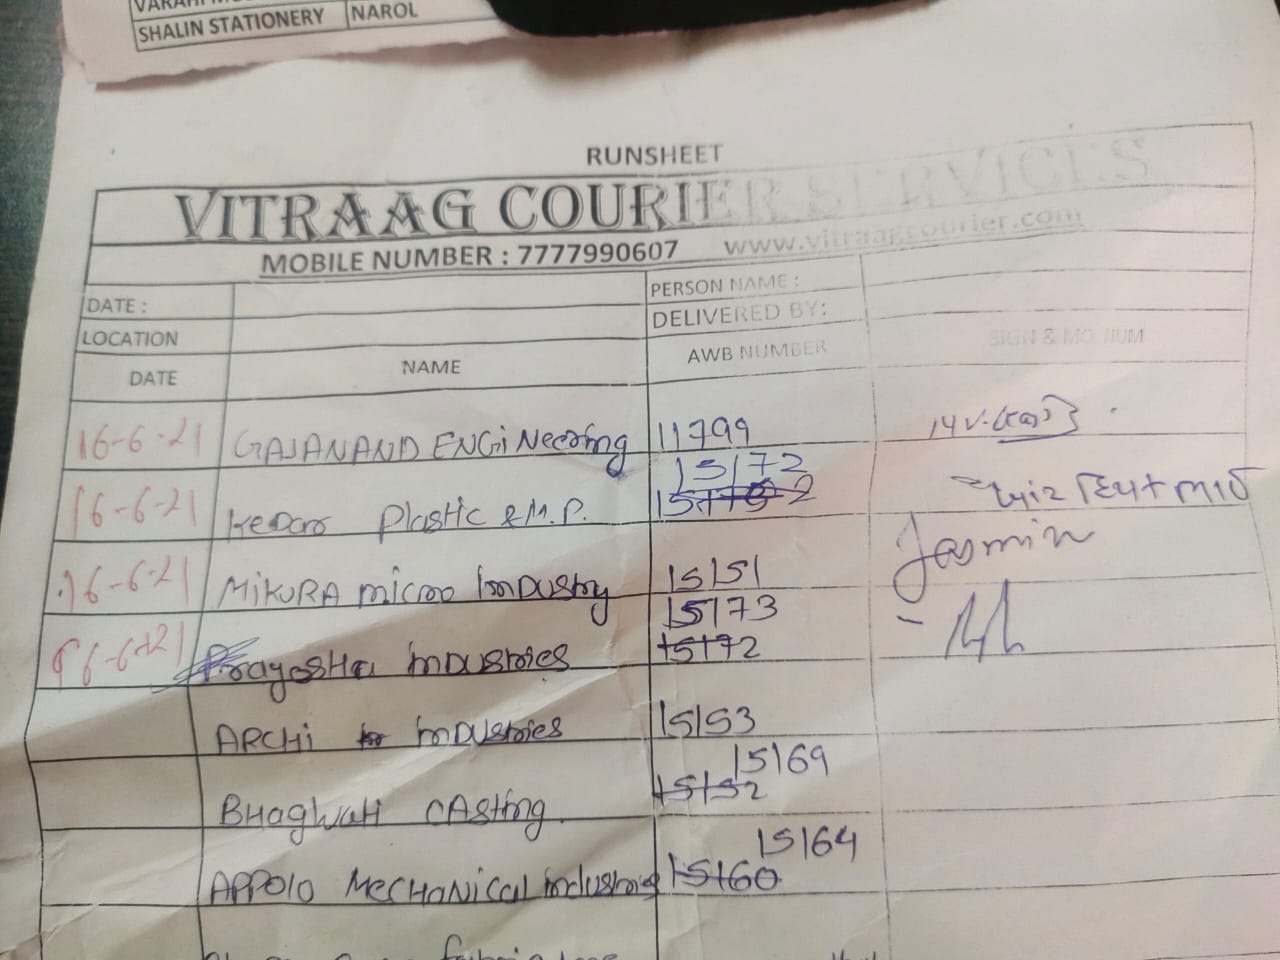 SHALIN STATIONERY NAROL
RUNSHEET
VITRAAG COURIER SERVICES
MOBILE NUMBER : 7777990607 www.vitraagcourier.com
DATE : PERSON NAME :
LOCATION DELIVERED BY:
DATE NAME AWB NUMBER SIGN & MO NUM
16-6-21 GAJANAND ENGiNeering 11799
15172
16-6-21 Kedar Plastic & M.P.
Jasmin
16-6-21 MiKURA micro inDUStry 15151
15173
6-6-21 PrayosHa inDUStries 15172
ARCHi inDUStries 15153
15169
BHagWati CAsting. 15152
15164
APPOlO MecHaNical industries 15160